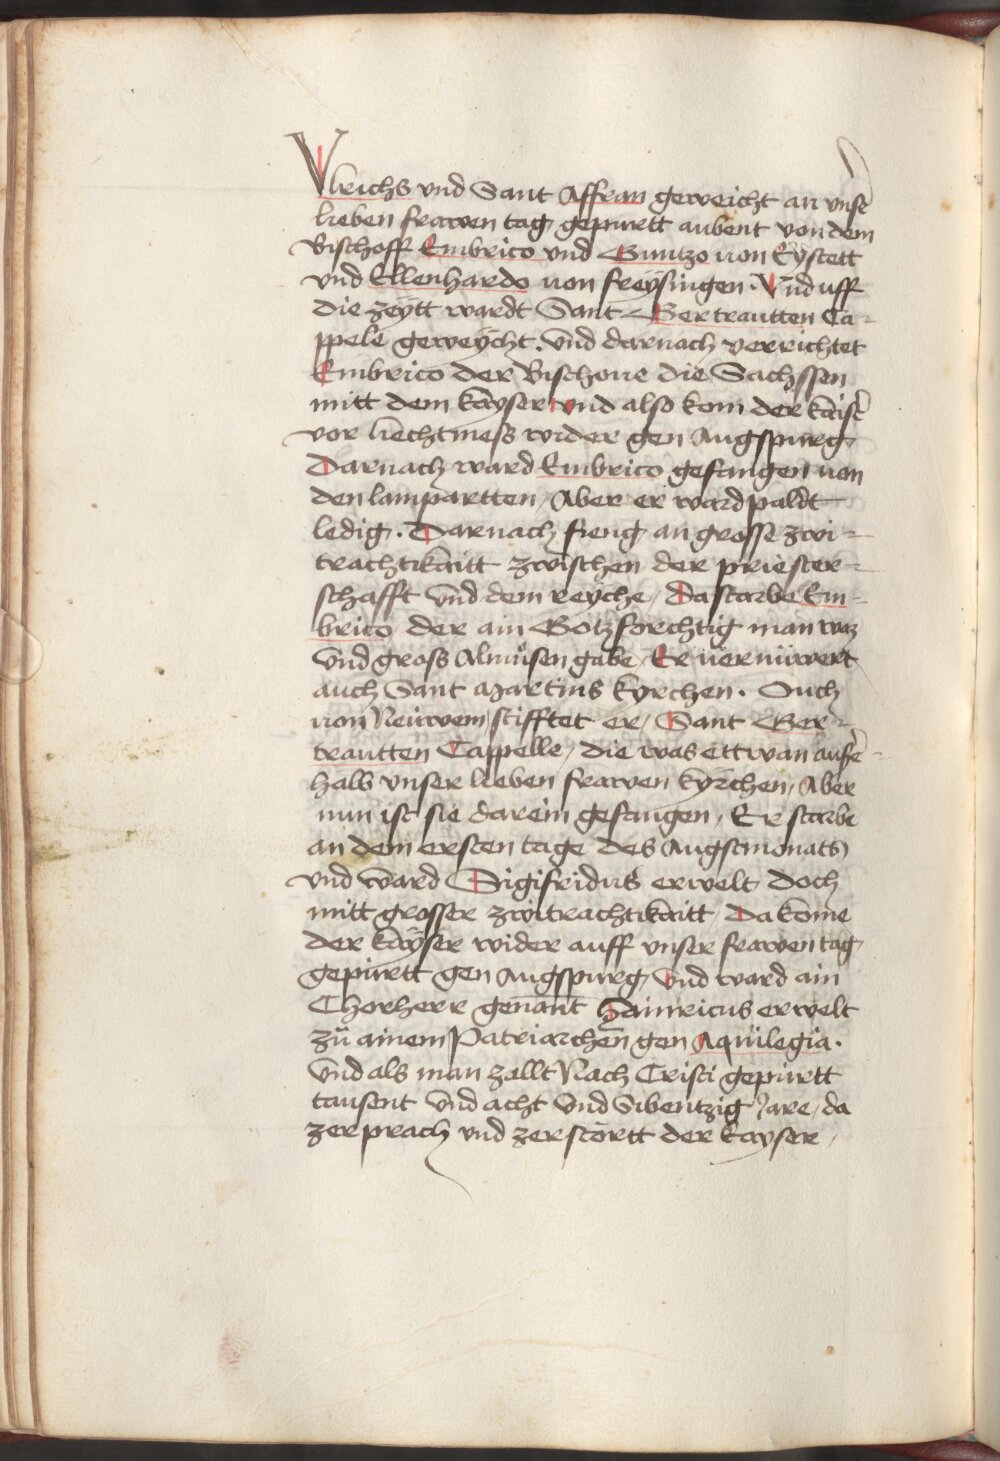 Vlrichs vnd Sant Affran geweicht an vnser
lieben frawen tag gepurtt aubent von dem
Bischoff Embrico vnd Guntzo von Eystett
vnd Ellenhardo von freysingen. Vnd uff
die zeytt wardt Sant Gertrautten Ca-
ppele geweycht. vnd darnach verrichtet
Embrico der Bischoue die Sachssen
mitt dem kayser vnd also kom der kaiser
vor liechtmess wider gen Augspurg
Darnach ward Embrico gefangen von
den lampartten / Aber er ward paldt
ledig. Darnach fieng an grosse zwi-
trachtikaitt zwischen der priester-
schafft vnd dem reyche / Da starbe Em-
brico der ain Gotzforchtig man waz
vnd gross Almusen gabe / Er vernuwert
auch Sant Martins kyrchen. Ouch
von Neuwem stifftet er / Sant Ger-
trautten Cappelle / die was ettwan ausser
halb vnser lieben frawen kyrchen / Aber
nun ist sie darein gefangen / Er starbe
an dem ersten tage des Augstmonats
vnd ward Sigifridus erwelt doch
mitt grosser zwitrachtikaitt / Da kome
der kayser wider auff vnser frawen tag
gepurtt gen Augspurg / vnd ward ain
Chorherr genant Hainricus erwelt
zu ainem Patriarchen gen Aquilegia.
Vnd als man zallt Nach Cristi gepurtt
tausent vnd acht vnd Sibentzig Jare / da
zerprach vnd zerstortt der kayser /